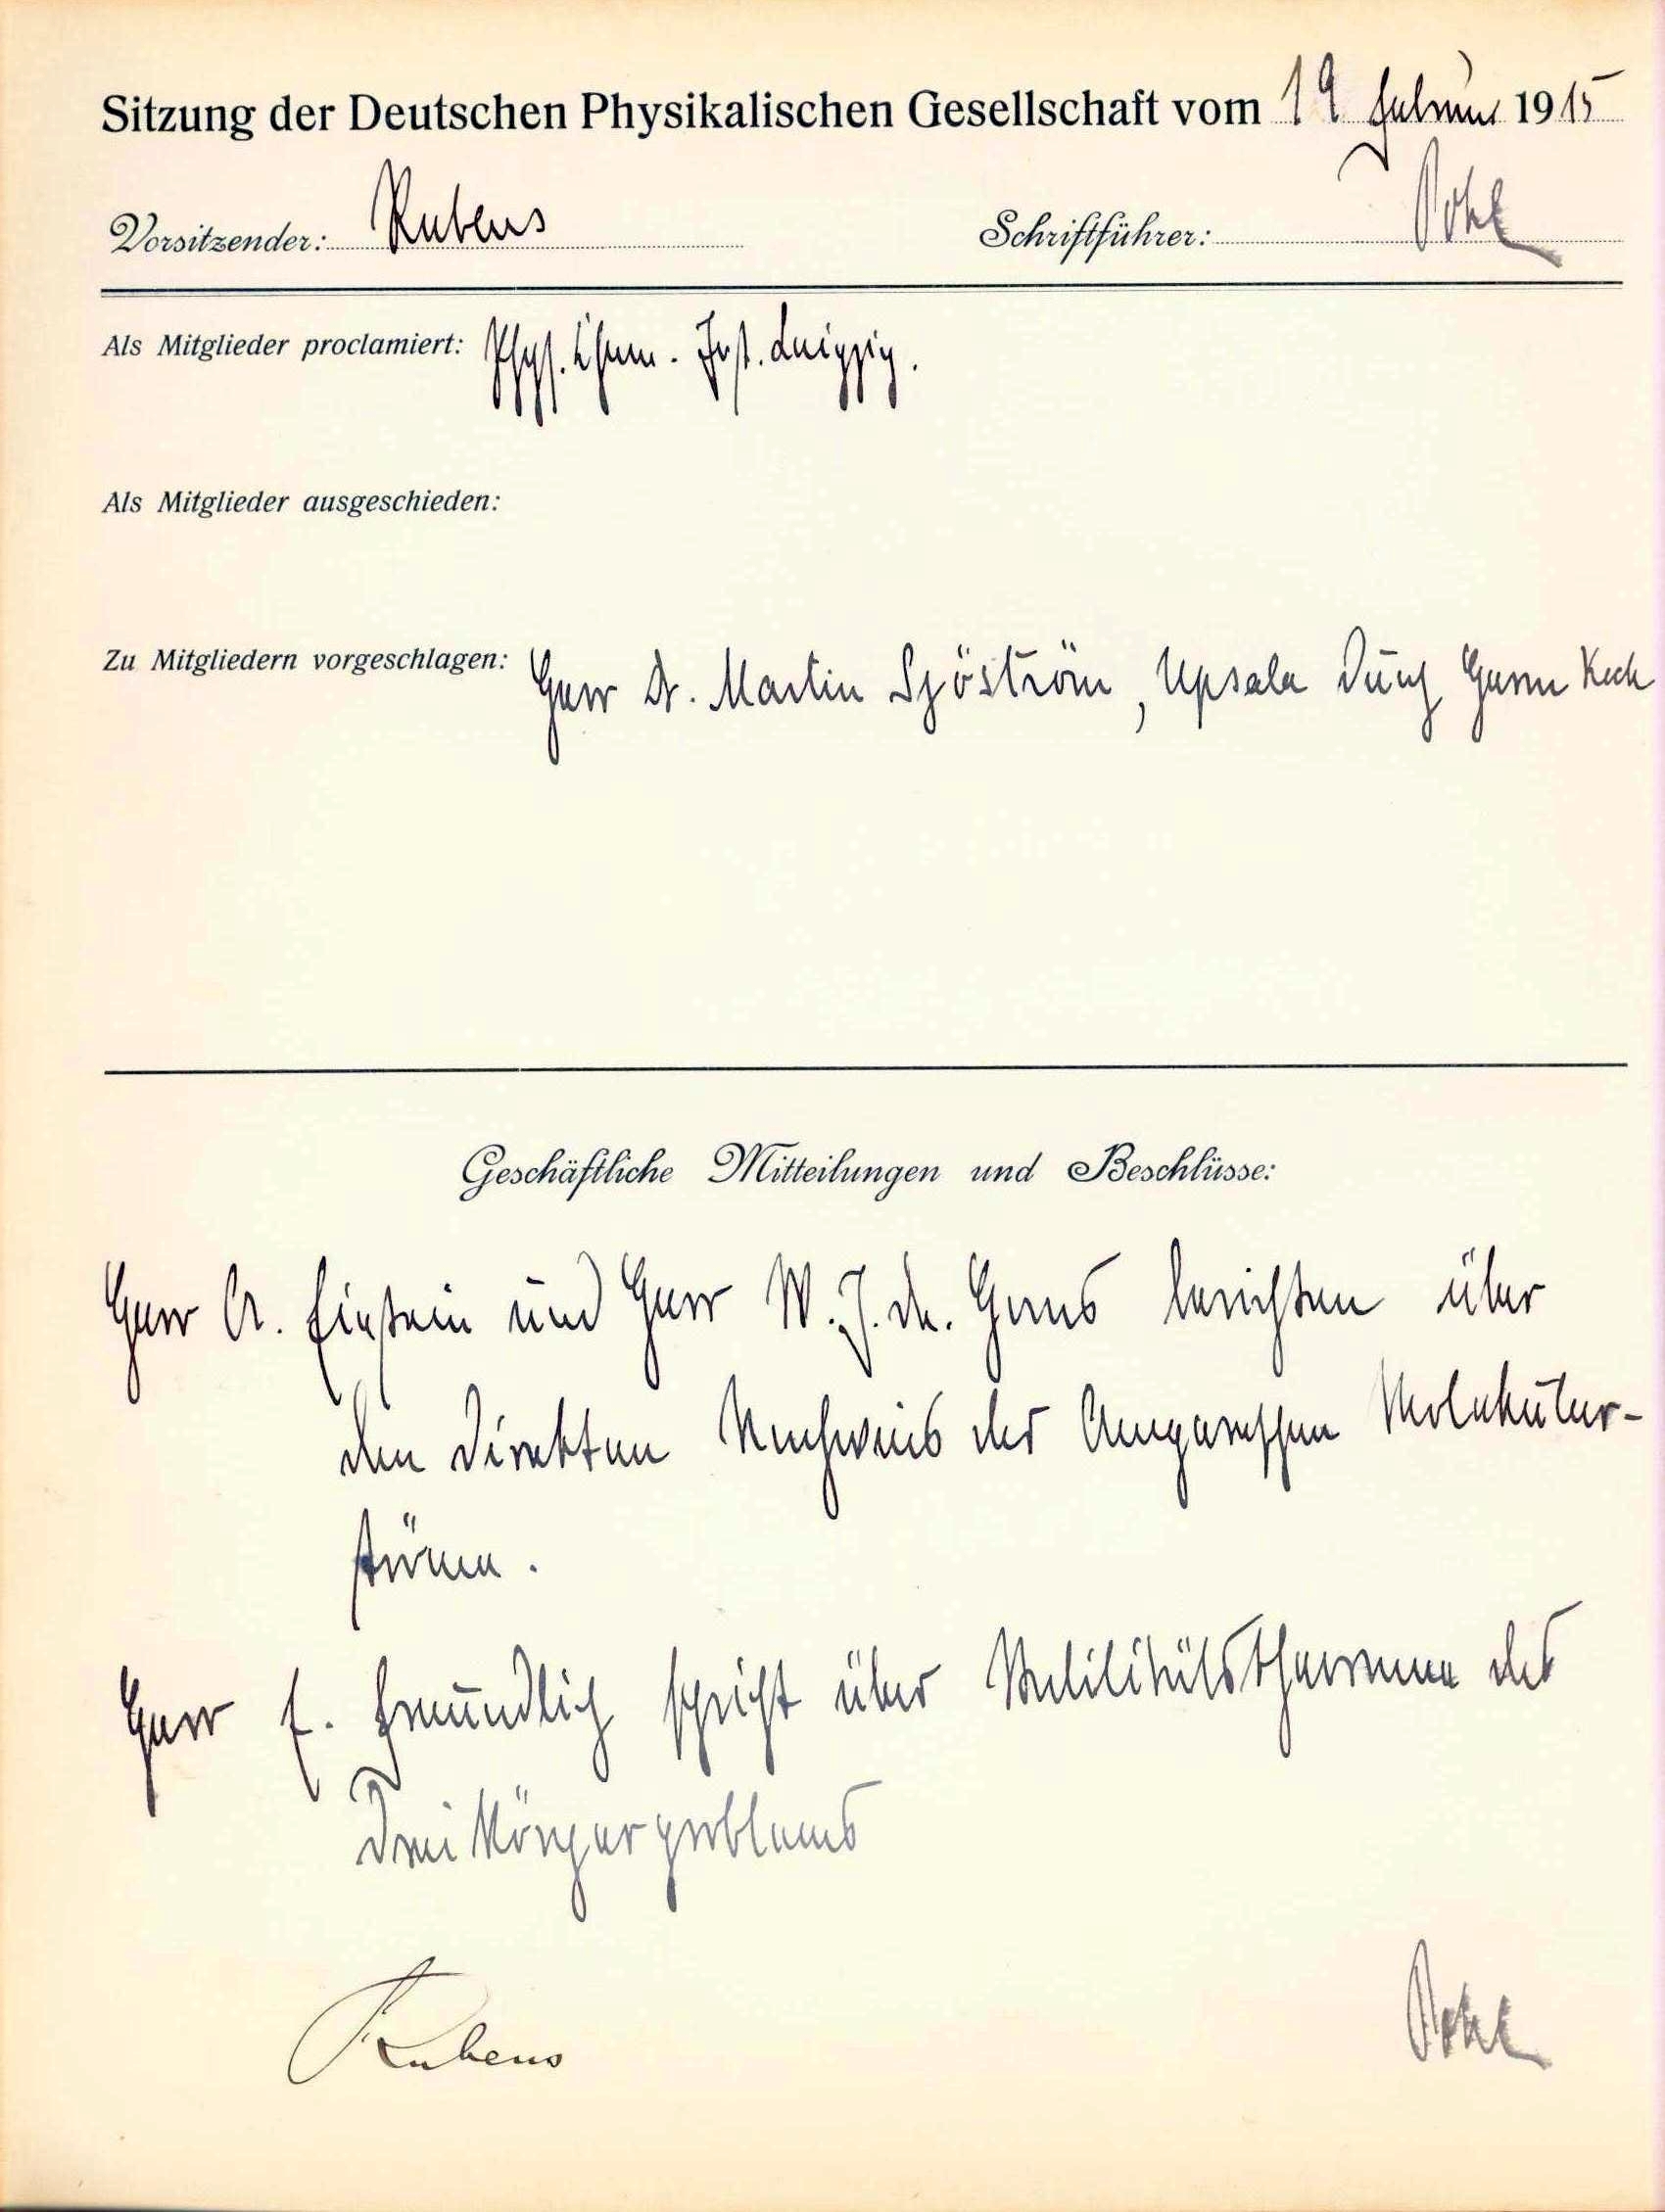 Sitzung der Deutschen Physikalischen Gesellschaft vom 19 Februar 1915
Vorsitzender: Rubens Schriftführer: Pohl
Als Mitglieder proclamiert: Phys. Chem. Inst. Leipzig.
Als Mitglieder ausgeschieden:
Zu Mitgliedern vorgeschlagen: Herr Dr. Martin Sjöström, Upsala durch Herrn Koch
Geschäftliche Mitteilungen und Beschlüsse:
Herr A. Einstein und Herr W. J. de. Haas berichten über
den direkten Nachweis der Ampereschen Molekular-
ströme.
Herr E. Freundlich spricht über Stabilitätstheoreme des
Dreikörperproblems
Rubens Pohl